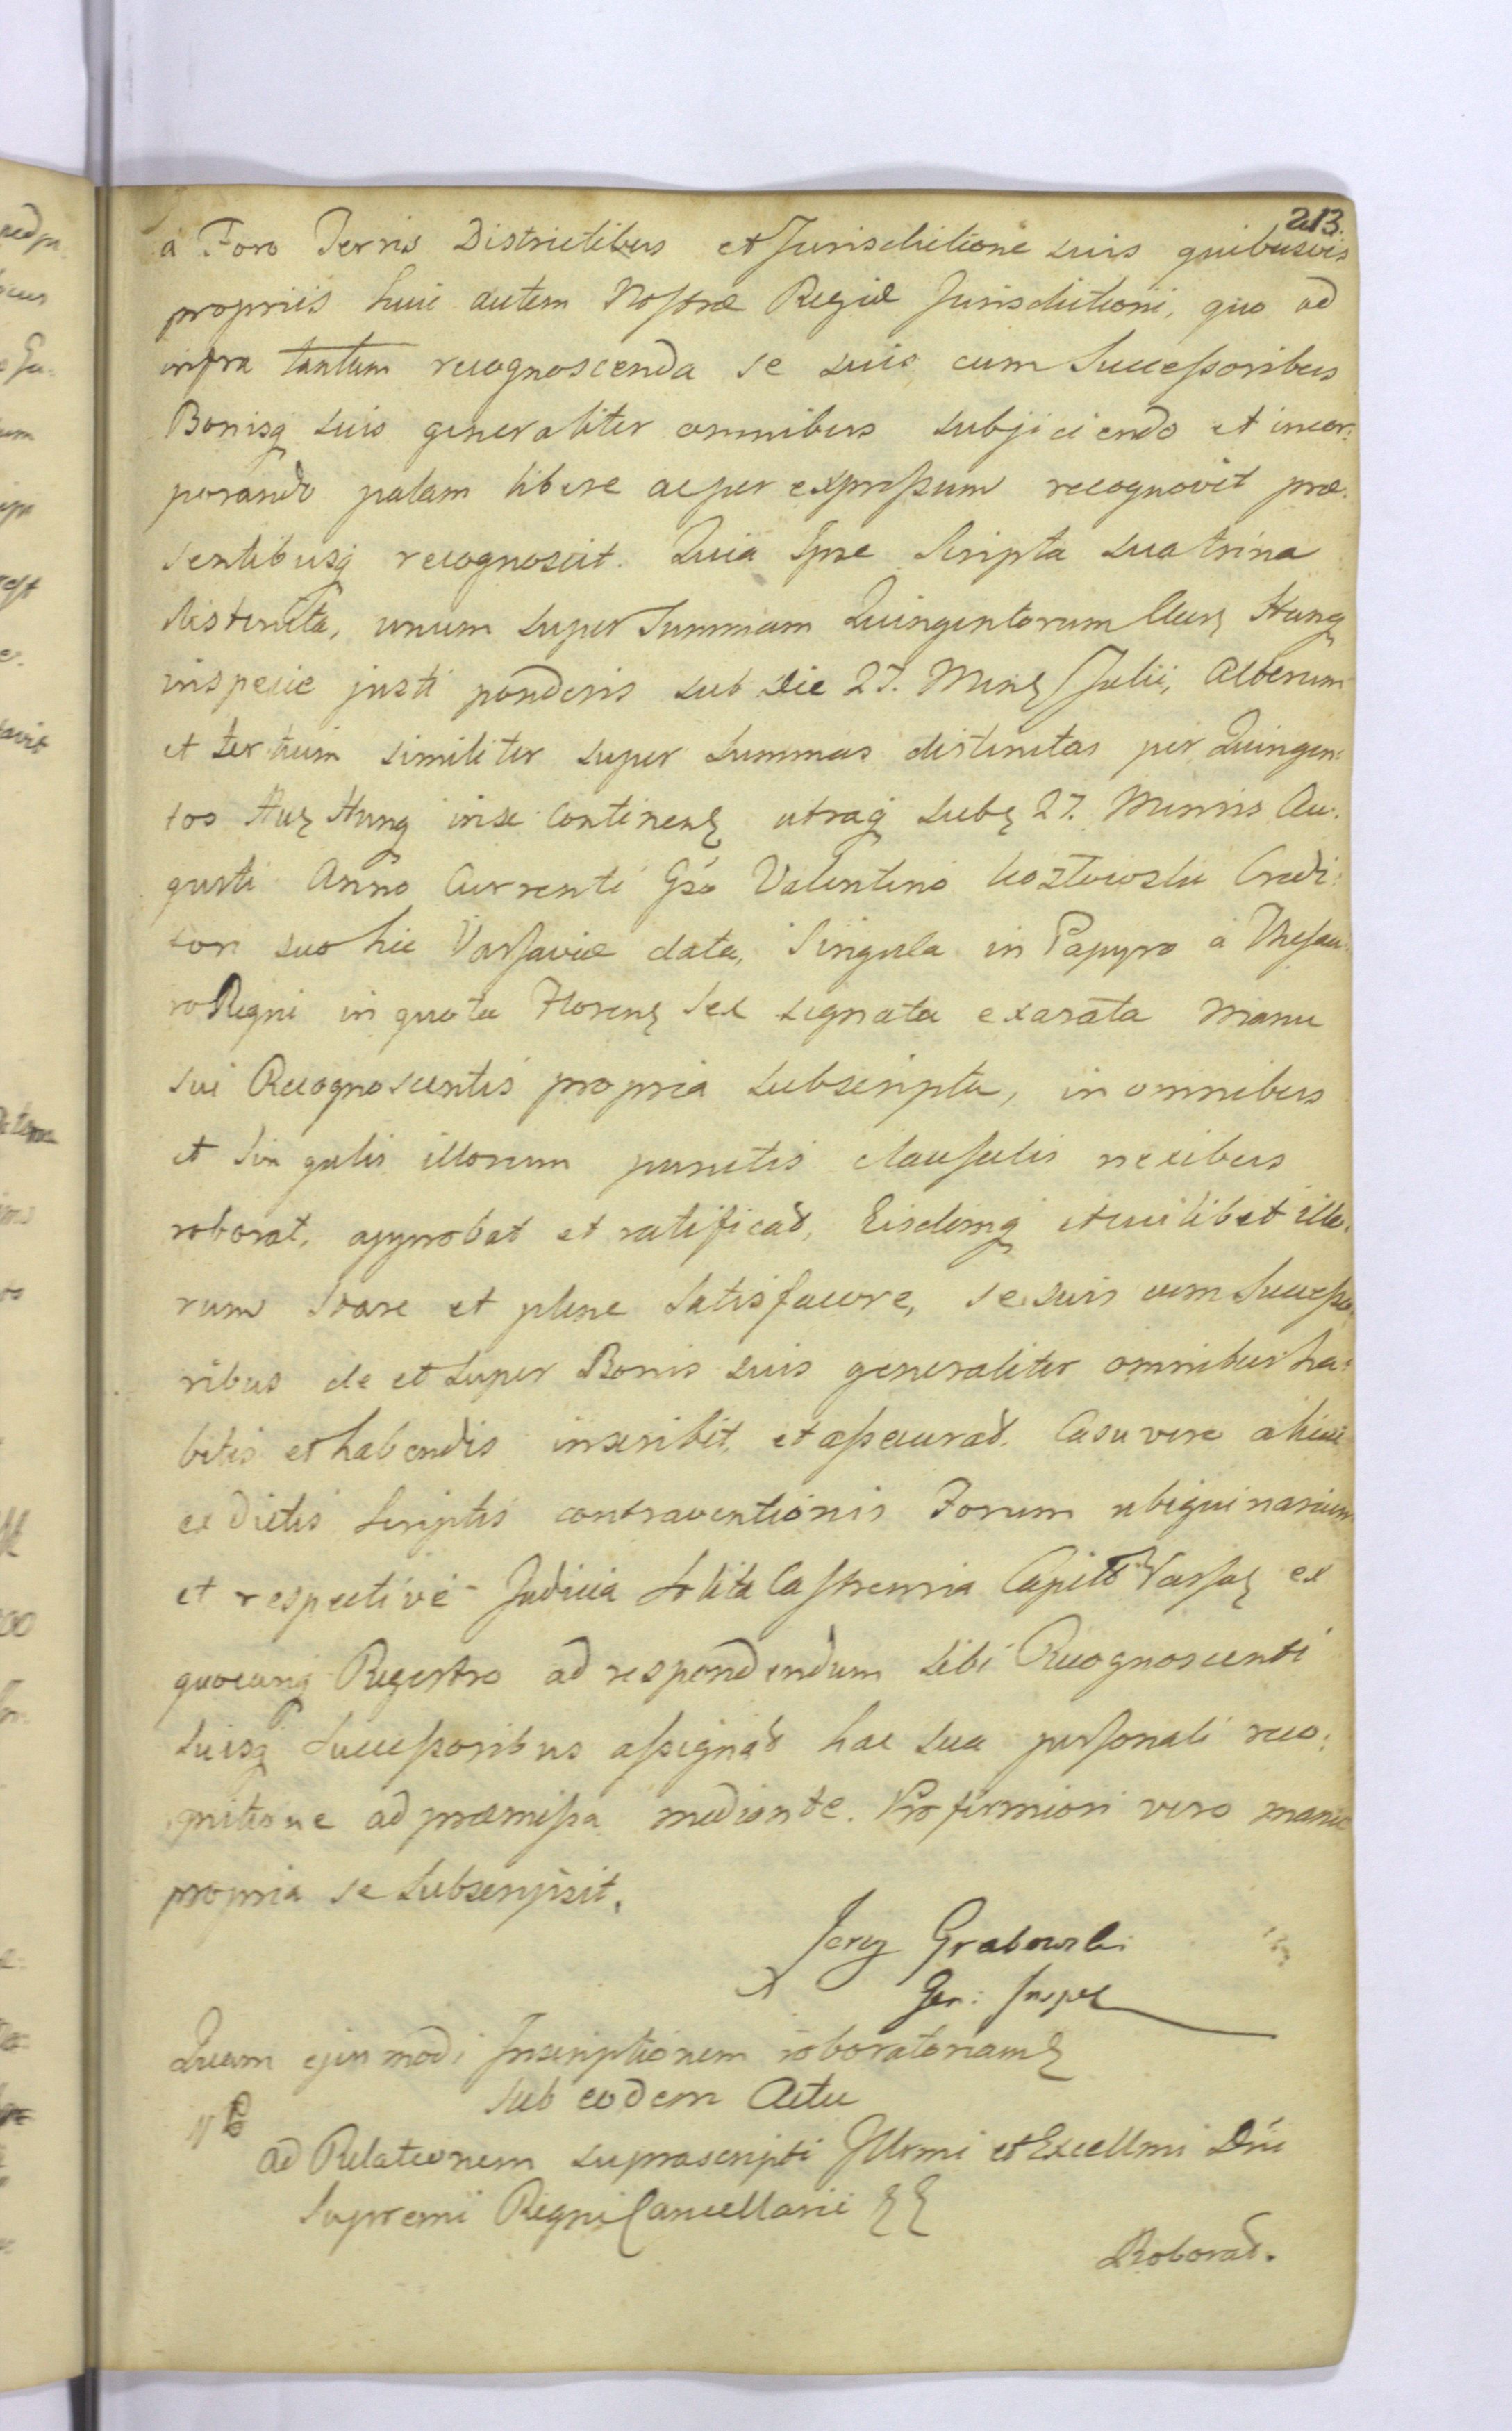 213.
a Foro Terris Districtibus et Jurisdictione suis quibusvis
propriis huic autem Nostræ Regiæ Jurisdictioni, quo ad
infra tantum recognoscenda se suis cum Successoribus
Bonisq suis generaliter omnibus subjiciendo et incor:
porando palam libere ac per expressum recognovit præ:
sentibusq recognoscit. Quia Ipse Scripta sua trina
distincta, unum super Summam Quingentorum Aur Hung
in specie justi ponderis sub die 27. Mens Julii, Alterum
et tertium similiter super Summas distinctas per Quingen:
tos Aur Hung in se continen utraq sub 27. Mensis Au:
gusti Anno Currenti Gso Valentino Kozłowski Credi:
tori suo hic Varsaviæ data, Singula in Papyro a Thesau:
ro Regni in quota Floren Sex signata exarata manu
sui Recognoscentis propria subscripta, in omnibus
et singulis illorum punctis clausulis nexibus
roborat, approbat et ratificat, Eisdemq et cuilibet illo:
rum stare et plene satisfacere, se suis cum Successo:
ribus de et super Bonis suis generaliter omnibus ha:
bitis et habendis inscribit et assecurat. Casu vero alicui
ex dictis Scriptis contraventionis Forum ubiquinarium
et respective Judicia solita Castrensia Capitt Varsav ex
quocunq Regestro ad respondendum sibi Recognoscenti
suisq Successoribus assignat hac sua personali reco:
gnitione ad præmissa mediante. Pro firmiori vero manu
propria se subscripsit.
Jerzy Grabowski
Gen: Inspek
Quam ejusmodi Inscriptionem roboratoriam
Sub eodem Actu
ad Relationem suprascripti Illrmi et Excellmi Dni
Supremi Regni Cancellarii
Roborat.